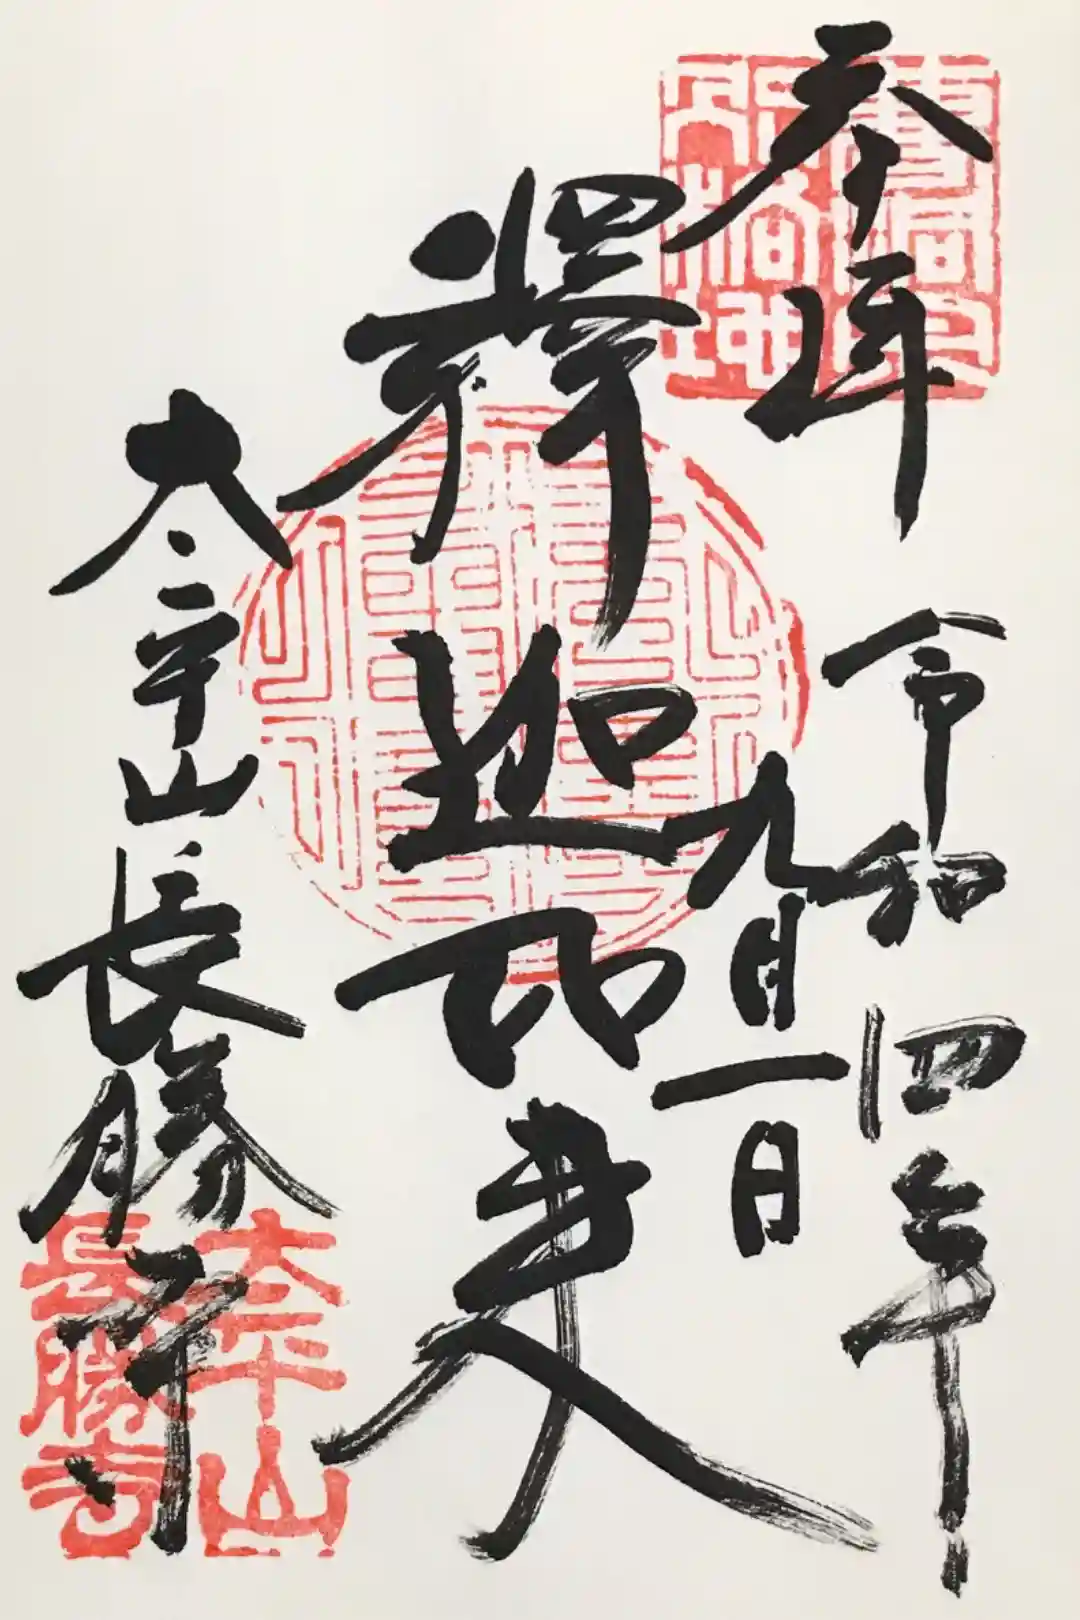 奉拝
令和四年
九月一日
釋迦如来
太平山
長勝寺
太平山
長勝寺